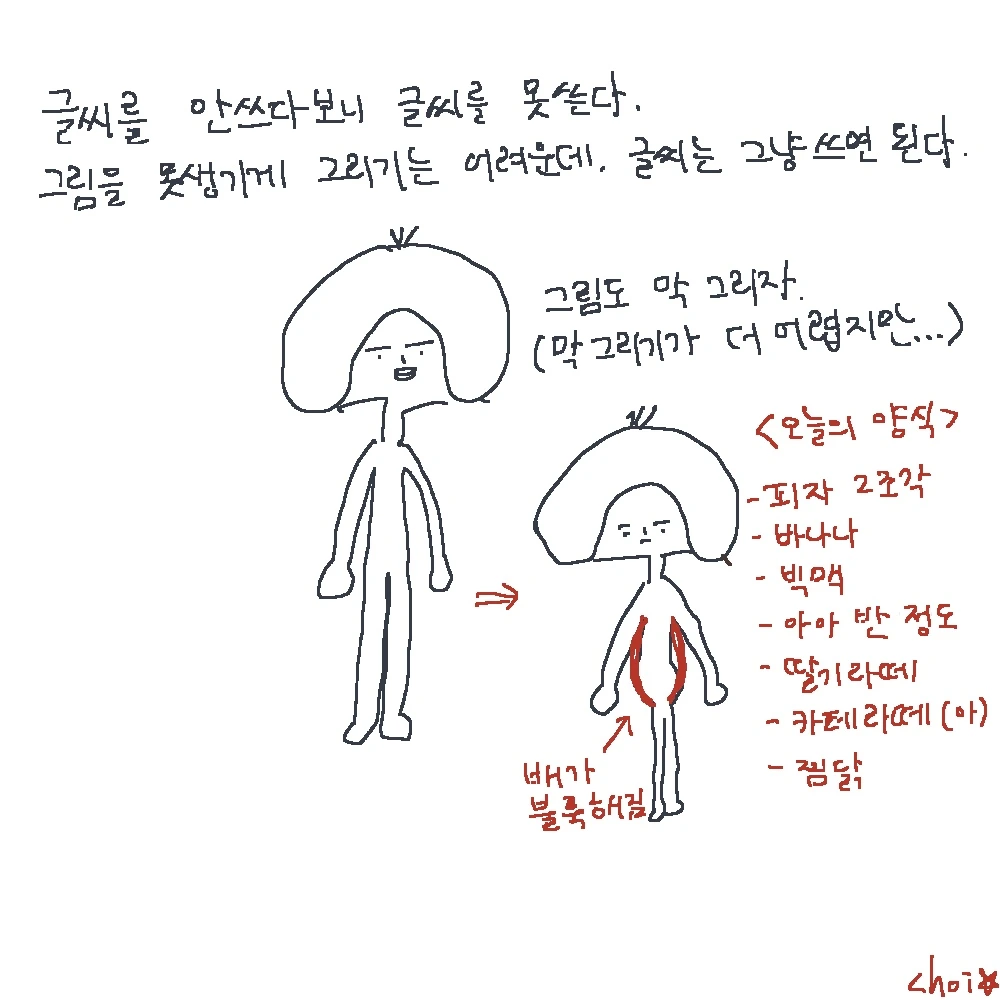 글씨를 안쓰다보니 글씨를 못쓴다.
그림을 못생기게 그리기는 어려운데. 글씨는 그냥 쓰면 된다.
그림도 막 그리자.
(막 그리기가 더 어렵지만...)
<오늘의 양식>
- 피자 2조각
- 바나나
- 빅맥
- 아아 반 정도
- 딸기라떼
- 카페라떼(아)
- 찜닭
배가
불룩해짐
choi